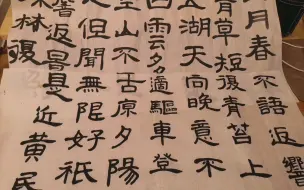 月春不語返響
青草復青苔上
湖天向晚意不
雲多適驅車登
山不古原夕陽
但聞無限好祇
響返景是近黃
林復